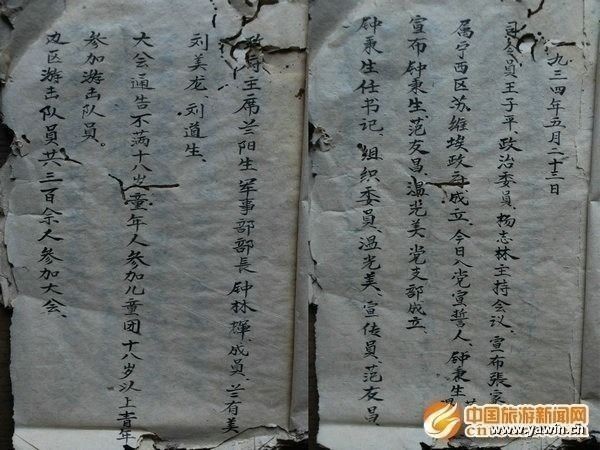 一九三四年五月二十三日
司令员王子平、政治委员、杨志林主持会议、宣布張家
属宁西区苏维埃政府成立、今日入党宣誓人、钟秉生
宣布钟秉生、范友昌、温光美、党支部成立、
钟秉生任书记、组织委員、温光美、宣传員、范友昌、
主席兰阳生 军事部部長 钟林樿、成員、兰有美
刘美龙、刘道生、
大会通告不满十八岁童年人参加儿童团十八岁以上青年
参加游击队員。
边区游击队員共三百余人参加大会、
中国旅游新闻网
www.yawin.cn